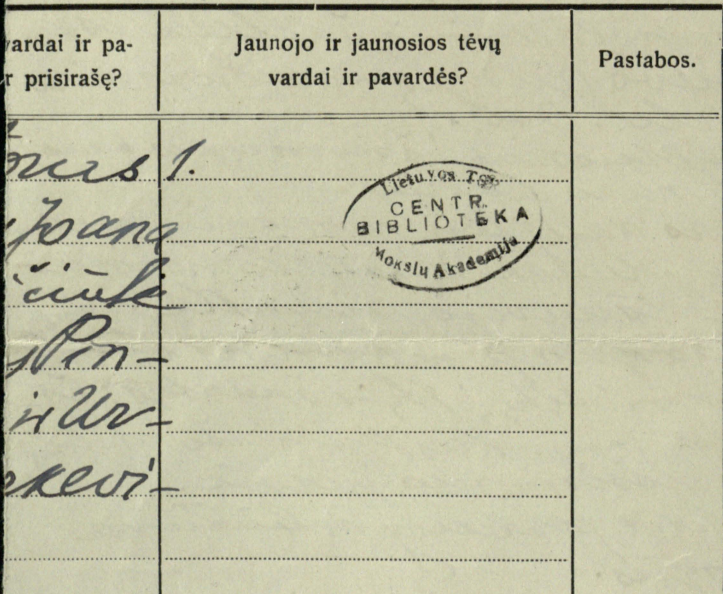 vardai ir pa-
r prisirašę?
Jaunojo ir jaunosios tėvų
vardai ir pavardės?
Pastabos.
1.
Joana
čiūtė
Pin-
ir Ur-
kevi-
Lietuvos TSR
CENTR.
BIBLIOTEKA
Mokslų Akademija